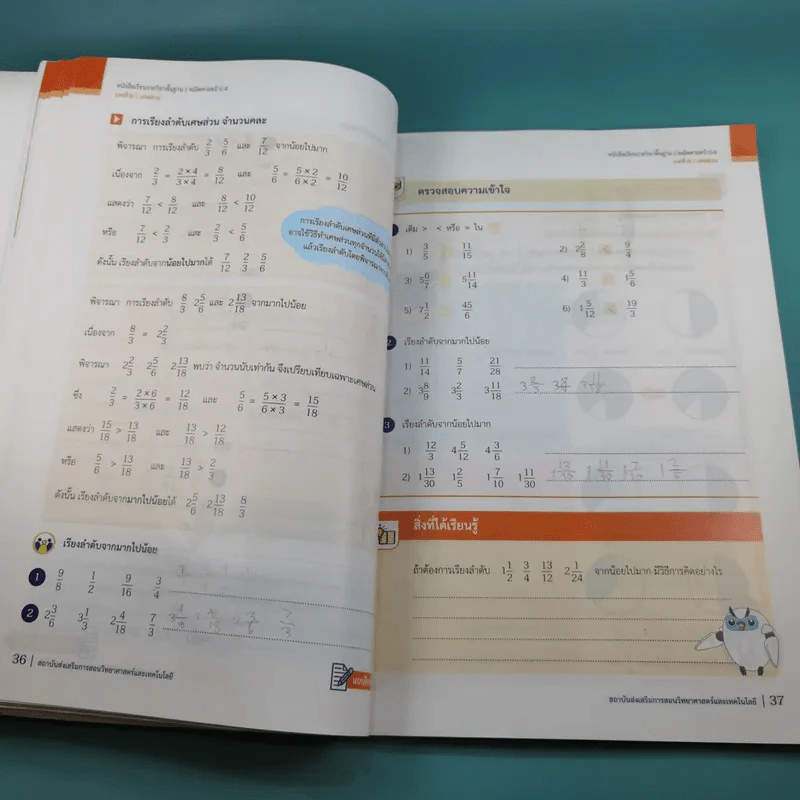 หนังสือเรียนรายวิชาพื้นฐาน | คณิตศาสตร์ ป.4
บทที่ | เศษส่วน
การเรียงลำดับเศษส่วน จำนวนคละ
พิจารณา การเรียงลำดับ 2/3 5/6 และ 7/12 จากน้อยไปมาก
เนื่องจาก 2/3 = 2×4/3×4 = 8/12 และ 5/6 = 5×2/6×2 = 10/12
แสดงว่า 7/12 < 8/12 และ 8/12 < 10/12
หรือ 7/12 < 2/3 และ 2/3 < 5/6
การเรียงลำดับเศษส่วน
อาจใช้วิธีทำเศษส่วนทุกจำนวนให้
แล้วเรียงลำดับโดยพิจารณา
ดังนั้น เรียงลำดับจากน้อยไปมากได้ 7/12 2/3 5/6
พิจารณา การเรียงลำดับ 8/3 2 5/6 และ 2 13/18 จากมากไปน้อย
เนื่องจาก 8/3 = 2 2/3
พิจารณา 2 2/3 2 5/6 2 13/18 พบว่า จำนวนนับเท่ากัน จึงเปรียบเทียบเฉพาะเศษส่วน
ซึ่ง 2/3 = 2×6/3×6 = 12/18 และ 5/6 = 5×3/6×3 = 15/18
แสดงว่า 15/18 > 13/18 และ 13/18 > 12/18
หรือ 5/6 > 13/18 และ 13/18 > 2/3
ดังนั้น เรียงลำดับจากมากไปน้อยได้ 2 5/6 2 13/18 8/3
เรียงลำดับจากมากไปน้อย
1 9/8 1/2 9/16 3/4
2 2 3/6 3 1/3 2 4/18 7/3 7/3
36 | สถาบันส่งเสริมการสอนวิทยาศาสตร์และเทคโนโลยี
หนังสือเรียนรายวิชาพื้นฐาน | คณิตศาสตร์ ป.4
บทที่ | เศษส่วน
ตรวจสอบความเข้าใจ
เติม > < หรือ = ใน
1) 3/5 11/15 2) 2 2/8 < 9/4
3) 5 6/7 5 11/14 4) 11/3 1 5/6
5) 7 1/2 45/6 6) 1 5/12 < 19/3
2 เรียงลำดับจากมากไปน้อย
1) 11/14 5/7 21/28
2) 3 8/9 3 2/3 3 11/18
3 เรียงลำดับจากน้อยไปมาก
1) 12/3 4 5/12 4 3/6
2) 1 13/30 1 2/5 1 7/10 1 11/30
สิ่งที่ได้เรียนรู้
ถ้าต้องการเรียงลำดับ 1 1/2 3/4 13/12 2 1/24 จากน้อยไปมาก มีวิธีการคิดอย่างไร
สถาบันส่งเสริมการสอนวิทยาศาสตร์และเทคโนโลยี | 37